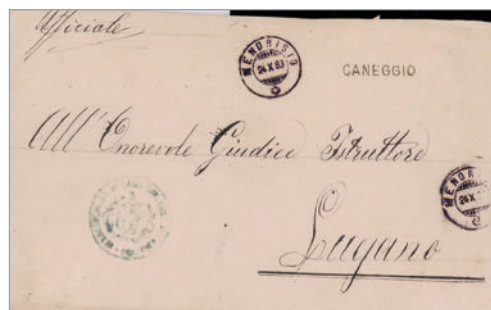 Ufficiale
MENDRISIO
24 X 83
CANEGGIO
All' Onorevole Giudice Istruttore
MENDRISIO
24 X
Lugano